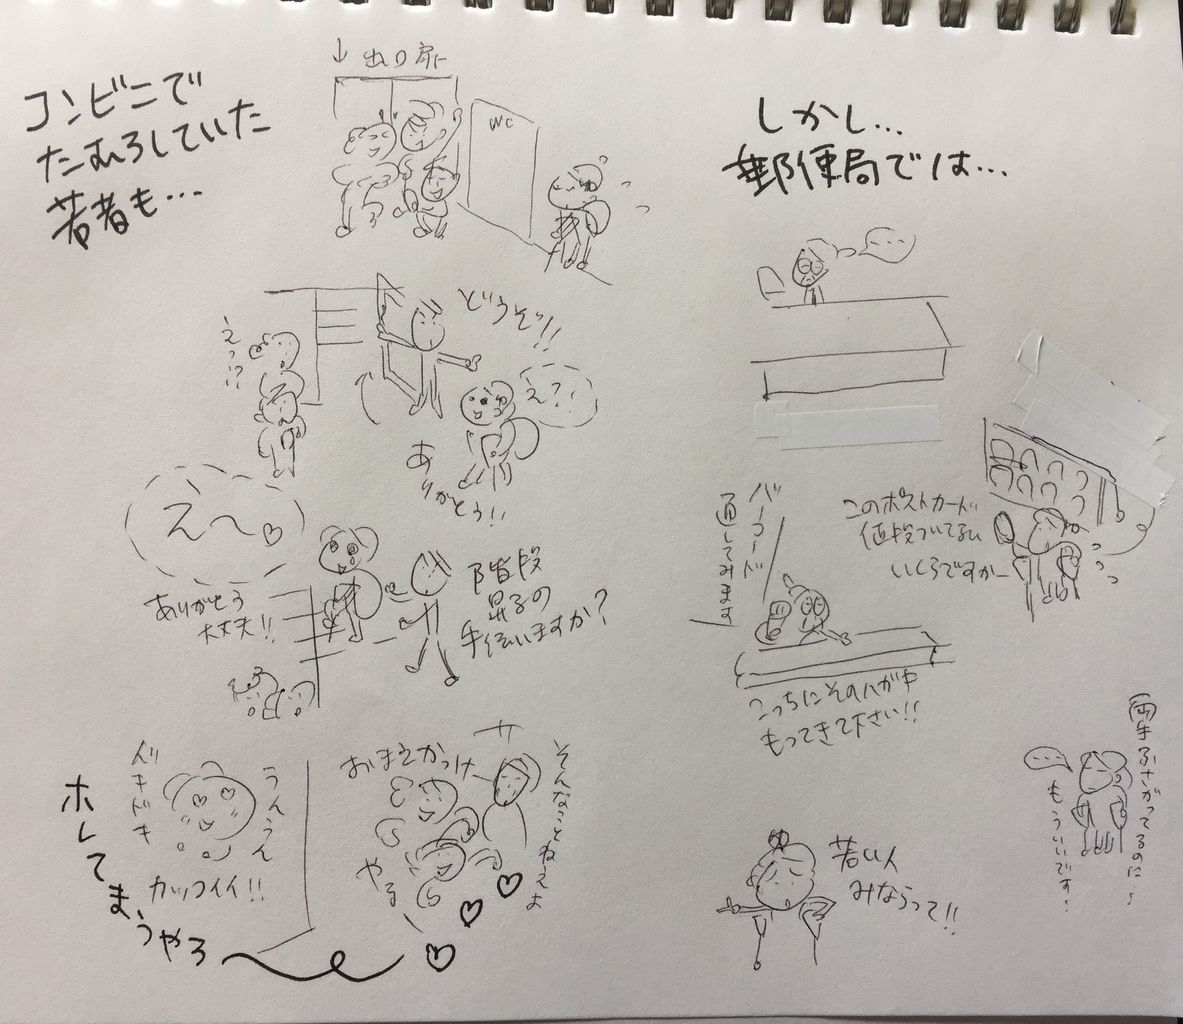 コンビニで
たむろしていた
若者も…
↓出口扉
WC
どうぞ!!
えっ!?
え?!
ありがとう!!
え〜♡
ありがとう
大丈夫!!
階段
昇るの
手伝いますか?
ドキドキ
うんうん
カッコイイ!!
ホレてまうやろ
おまえかっけー
やる
そんなことねえよ
しかし…
郵便局では…
…
このポストカード
値段ついてない
いくらですかー
バーコード
通してみます
こっちにそのハガキ
もってきて下さい!!
両手ふさがってるのに、
…
もういいです。
若い人
みならって!!